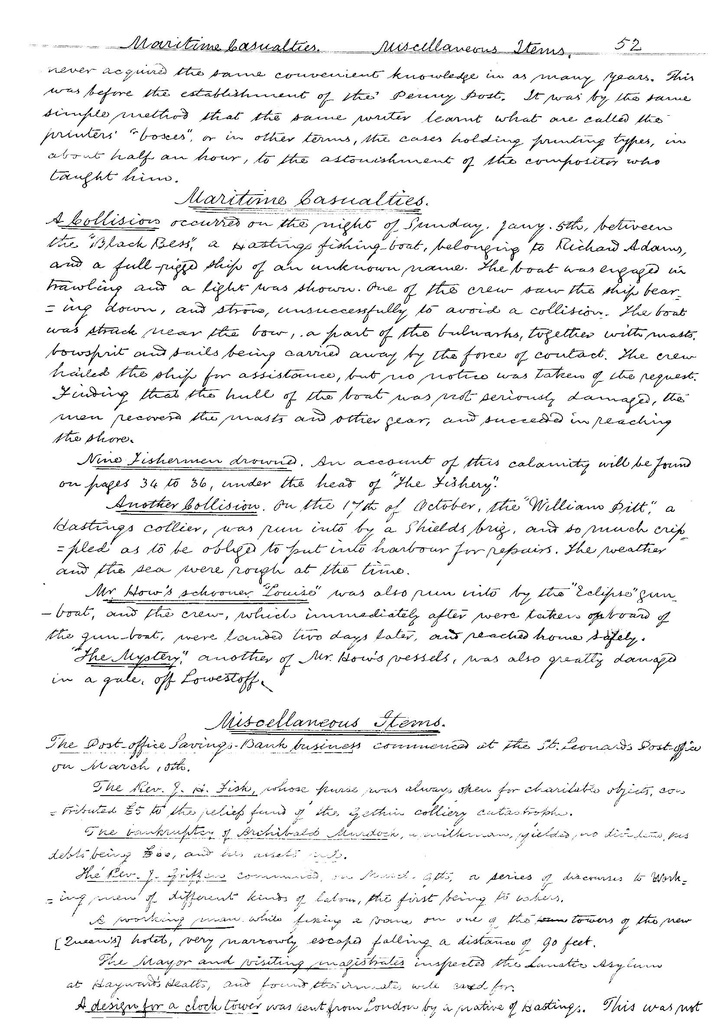 Maritime Casualties. Miscellaneous Items. 52
never acquired the same convenient knowledge in as many years. This
was before the establishment of the Penny Post. It was by the same
simple method that the same writer learnt what are called the
printers' "boxes", or in other terms, the cases holding printing types, in
about half an hour, to the astonishment of the compositor who
taught him.
Maritime Casualties.
A Collision occurred on the night of Sunday, Jany. 5th, between
the "Black Bess", a Hastings fishing-boat, belonging to Richard Adams,
and a full-rigged ship of an unknown name. The boat was engaged in
trawling and a light was shown. One of the crew saw the ship bear-
=ing down, and strove, unsuccessfully to avoid a collision. The boat
was struck near the bow, a part of the bulwarks, together with masts,
bowsprit and sails being carried away by the force of contact. The crew
hailed the ship for assistance, but no notice was taken of the request.
Finding that the hull of the boat was not seriously damaged, the
men recovered the masts and other gear, and succeeded in reaching
the shore.
Nine Fishermen drowned. An account of this calamity will be found
on pages 34 to 36, under the head of "The Fishery".
Another Collision. On the 17th of October, the "William Pitt", a
Hastings collier, was run into by a Shields brig, and so much crip-
=pled as to be obliged to put into harbour for repairs. The weather
and the sea were rough at the time.
Mr. How's schooner "Louise" was also run into by the "Eclipse" gun-
-boat, and the crew, which immediately after were taken on board of
the gun-boat, were landed two days later, and reached home safely.
"The Mystery," another of Mr. How's vessels, was also greatly damaged
in a gale, off Lowestoff.
Miscellaneous Items.
The Post-office Savings-Bank business commenced at the St. Leonards Post-office
on March 10th.
The Rev. J. H. Fish, whose purse was always open for charitable objects, con
=tributed £5 to the relief fund of the Gethin colliery catastrophe.
The bankruptcy of Archibald Murdoch, a milkman, yielded no dividend, his
debts being and his assets
The Rev. J. Griffin commenced, on March a series of discourses to Work-
=ing men of different kinds of labour, the first being to
A working man while fixing a vane on one of the towers of the new
[Queen's] hotel, very narrowly escaped falling a distance of 90 feet.
The Mayor and visiting magistrates inspected the Lunatic Asylum
at Hayward's Heath, and found the inmates well cared for.
A design for a clock tower was sent from London by a native of Hastings. This was not